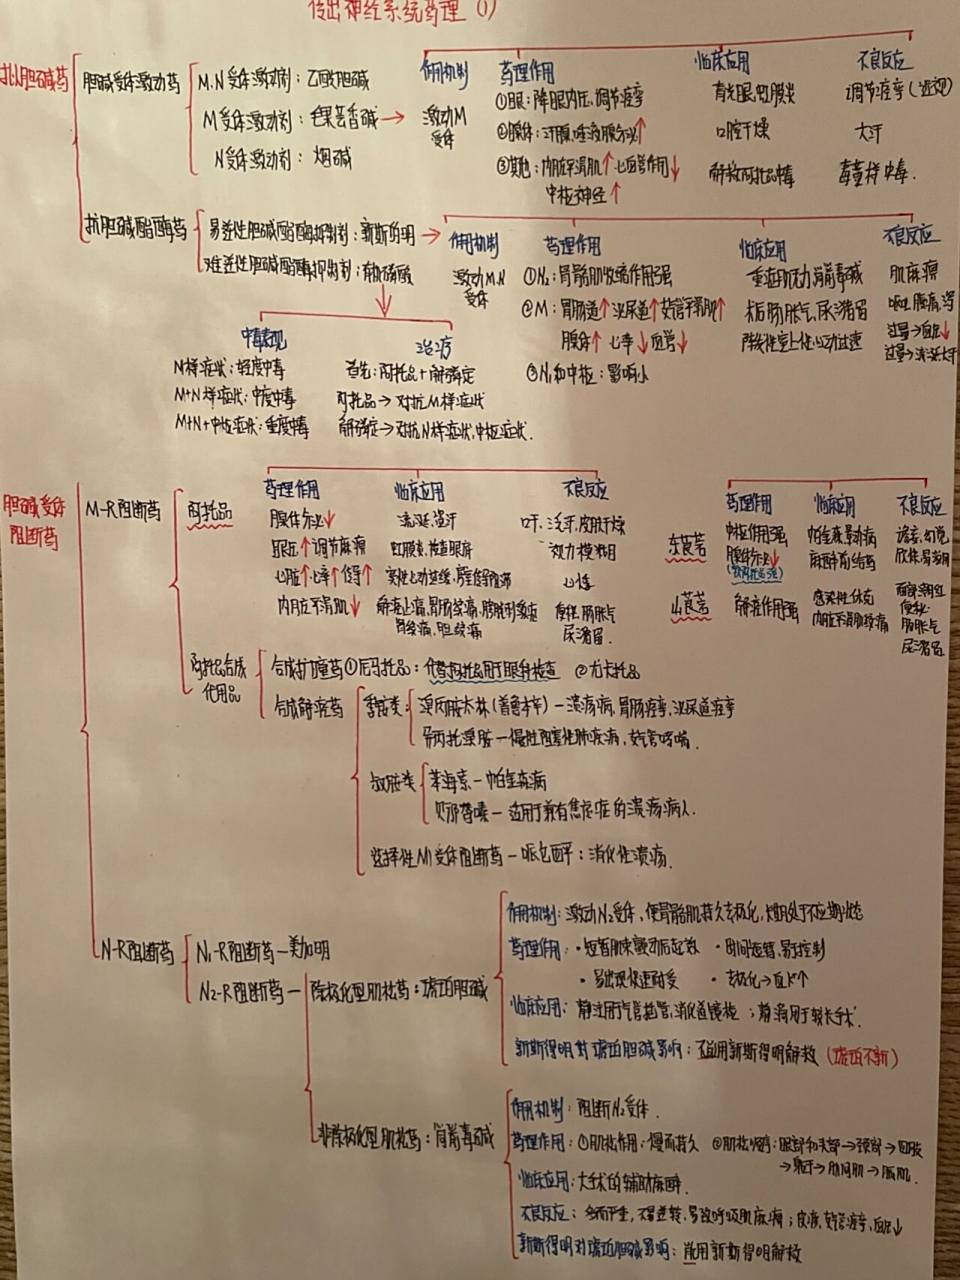 传出神经系统药理 (1)
拟胆碱药
胆碱受体激动药
M.N受体激动剂：乙酰胆碱
M受体激动剂：毛果芸香碱→
N受体激动剂：烟碱
作用机制 药理作用 临床应用 不良反应
激动M受体
①眼：降眼内压，调节痉挛 青光眼，虹膜炎 调节痉挛(近视)
②腺体：汗腺，唾液腺分泌↑ 口腔干燥 大汗
③其他：内脏平滑肌↑ 心血管作用↓ 解救阿托品中毒 毒蕈样中毒.
中枢神经↑
抗胆碱酯酶药
易逆性胆碱酯酶抑制剂：新斯的明→
难逆性胆碱酯酶抑制剂：有机磷酸
作用机制 药理作用 临床应用 不良反应
激动M.N受体
①N₂：骨骼肌收缩作用强 重症肌无力，筒箭毒碱 肌麻痹
②M：胃肠道↑泌尿道↑支气管平滑肌↑ 术后肠胀气，尿潴留 呕吐，腹痛，泻
腺体↑ 心率↓血管↓ 阵发性室上性心动过速 过量→血压↓
过量→流涎大汗
③N₁和中枢：影响小
中毒表现 治疗
N样症状：轻度中毒 首先：阿托品+解磷定
M+N样症状：中度中毒 阿托品→对抗M样症状
M+N+中枢症状：重度中毒 解磷定→对抗N样症状，中枢症状.
胆碱受体阻断药
M-R阻断药
阿托品
药理作用 临床应用 不良反应
腺体分泌↓ 流涎，盗汗 口干，乏汗，皮肤干燥
眼压↑调节麻痹 虹膜炎，检查眼底 视力模糊
心脏↑心率↑传导↑ 窦性心动过缓，房室传导阻滞 心悸
内脏平滑肌↓ 解痉止痛，胃肠绞痛，膀胱刺激症 便秘，肠胀气
肾绞痛，胆绞痛 尿潴留.
药理作用 临床应用 不良反应
东莨菪 中枢作用强 帕金森，晕动病 谵妄，幻觉
腺体分泌↓ 麻醉前给药 欣快，易激明
山莨菪 解痉作用强 感染性休克 面部潮红
内脏平滑肌绞痛 便秘.
肠胀气
尿潴留
阿托品合成代用品
合成扩瞳药①后马托品：代替阿托品用于眼科检查 ②尤卡托品
合成解痉药
季铵类：溴丙胺太林(普鲁本辛)—溃疡病，胃肠痉挛，泌尿道痉挛
异丙托溴胺—慢性阻塞性肺疾病，支气管哮喘.
叔胺类 苯海索—帕金森病
贝那替嗪—适用于兼有焦虑症的溃疡病人.
选择性M1受体阻断药—哌仑西平：消化性溃疡.
N-R阻断药
N₁-R阻断药—美加明
N₂-R阻断药—除极化型肌松药：琥珀胆碱
作用机制：激动N₂受体，使骨骼肌持久去极化，长期处于不应期状态
药理作用：·短暂肌束颤动后起效 ·时间短暂，易于控制
·易出现快速耐受 ·去极化→血K↑
临床应用：静注用于气管插管，消化道镜检；静滴用于较长手术.
新斯得明对琥珀胆碱影响：不适用新斯得明解救(琥珀不新)
非除极化型肌松药：筒箭毒碱
作用机制：阻断N₂受体.
药理作用：①肌松作用：慢而持久 ②肌松顺序：眼部和头部→颈部→四肢
→躯干→肋间肌→膈肌.
临床应用：大手术的辅助麻醉.
不良反应：多而严重，不易逆转，易致呼吸肌麻痹；皮疹，支气管痉挛，血压↓
新斯得明对琥珀胆碱影响：能用新斯得明解救